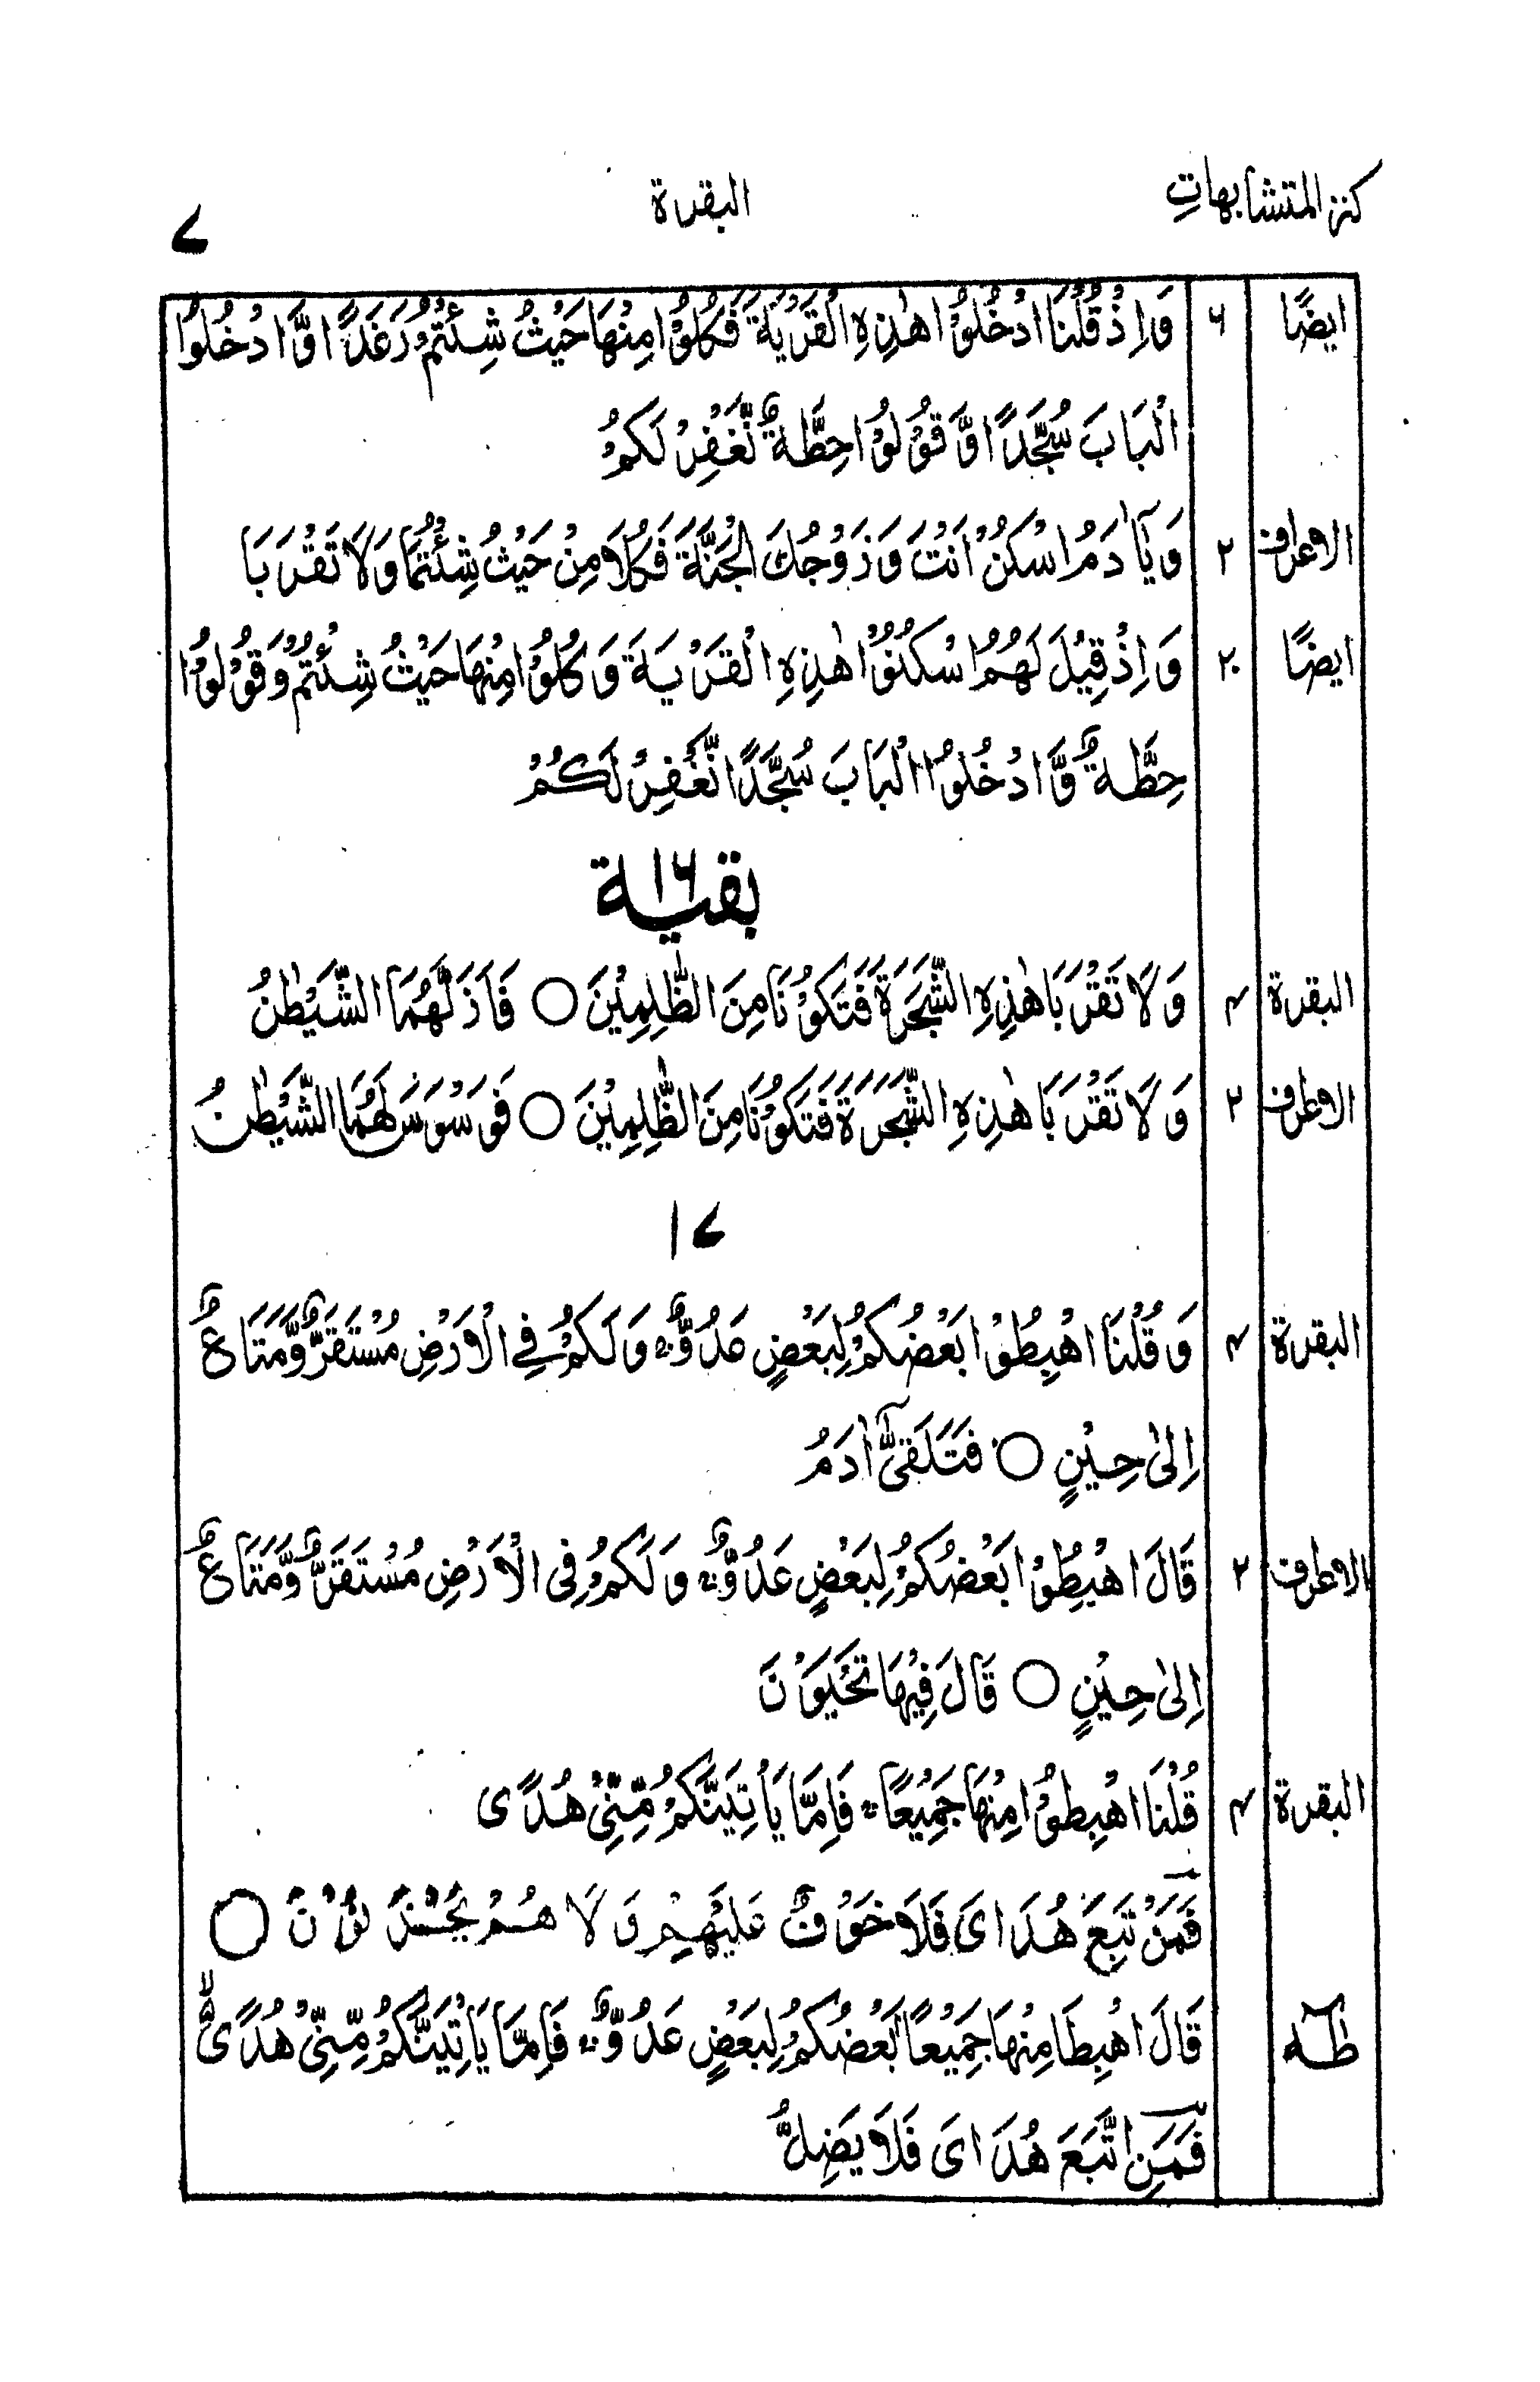 كنز المتشابهاتِ البقرة ٧
ايضًا ٦ وَاِذْ قُلْنَا ادْخُلُوْا هٰذِهِ الْقَرْيَةَ فَكُلُوْا مِنْهَا حَيْثُ شِئْتُمْ رَغَدًا وَّادْخُلُوا
الْبَابَ سُجَّدًا وَّقُوْلُوْا حِطَّةٌ نَّغْفِرْ لَكُمْ
الاعراف ٢ وَيٰٓاٰدَمُ اسْكُنْ اَنْتَ وَزَوْجُكَ الْجَنَّةَ فَكُلَا مِنْ حَيْثُ شِئْتُمَا وَلَا تَقْرَبَا
ايضًا ٢٠ وَاِذْ قِيْلَ لَهُمُ اسْكُنُوْا هٰذِهِ الْقَرْيَةَ وَكُلُوْا مِنْهَا حَيْثُ شِئْتُمْ وَقُوْلُوْا
حِطَّةٌ وَّادْخُلُوا الْبَابَ سُجَّدًا نَّغْفِرْ لَكُمْ
بقية ١٦
البقرة ٤ وَلَا تَقْرَبَا هٰذِهِ الشَّجَرَةَ فَتَكُوْنَا مِنَ الظّٰلِمِيْنَ ○ فَاَزَلَّهُمَا الشَّيْطٰنُ
الاعراف ٢ وَلَا تَقْرَبَا هٰذِهِ الشَّجَرَةَ فَتَكُوْنَا مِنَ الظّٰلِمِيْنَ ○ فَوَسْوَسَ لَهُمَا الشَّيْطٰنُ
١٧
البقرة ٤ وَقُلْنَا اهْبِطُوْا بَعْضُكُمْ لِبَعْضٍ عَدُوٌّ ۚ وَلَكُمْ فِي الْاَرْضِ مُسْتَقَرٌّ وَّمَتَاعٌ
اِلٰى حِيْنٍ ○ فَتَلَقّٰٓى اٰدَمُ
الاعراف ٢ قَالَ اهْبِطُوْا بَعْضُكُمْ لِبَعْضٍ عَدُوٌّ ۚ وَلَكُمْ فِى الْاَرْضِ مُسْتَقَرٌّ وَّمَتَاعٌ
اِلٰى حِيْنٍ ○ قَالَ فِيْهَا تَحْيَوْنَ
البقرة ٤ قُلْنَا اهْبِطُوْا مِنْهَا جَمِيْعًا ۚ فَاِمَّا يَاْتِيَنَّكُمْ مِّنِّيْ هُدًى
فَمَنْ تَبِعَ هُدَاىَ فَلَا خَوْفٌ عَلَيْهِمْ وَلَا هُمْ يَحْزَنُوْنَ ○
طٰهٰ قَالَ اهْبِطَا مِنْهَا جَمِيْعًا بَعْضُكُمْ لِبَعْضٍ عَدُوٌّ ۚ فَاِمَّا يَاْتِيَنَّكُمْ مِّنِّيْ هُدًى ۙ
فَمَنِ اتَّبَعَ هُدَاىَ فَلَا يَضِلُّ